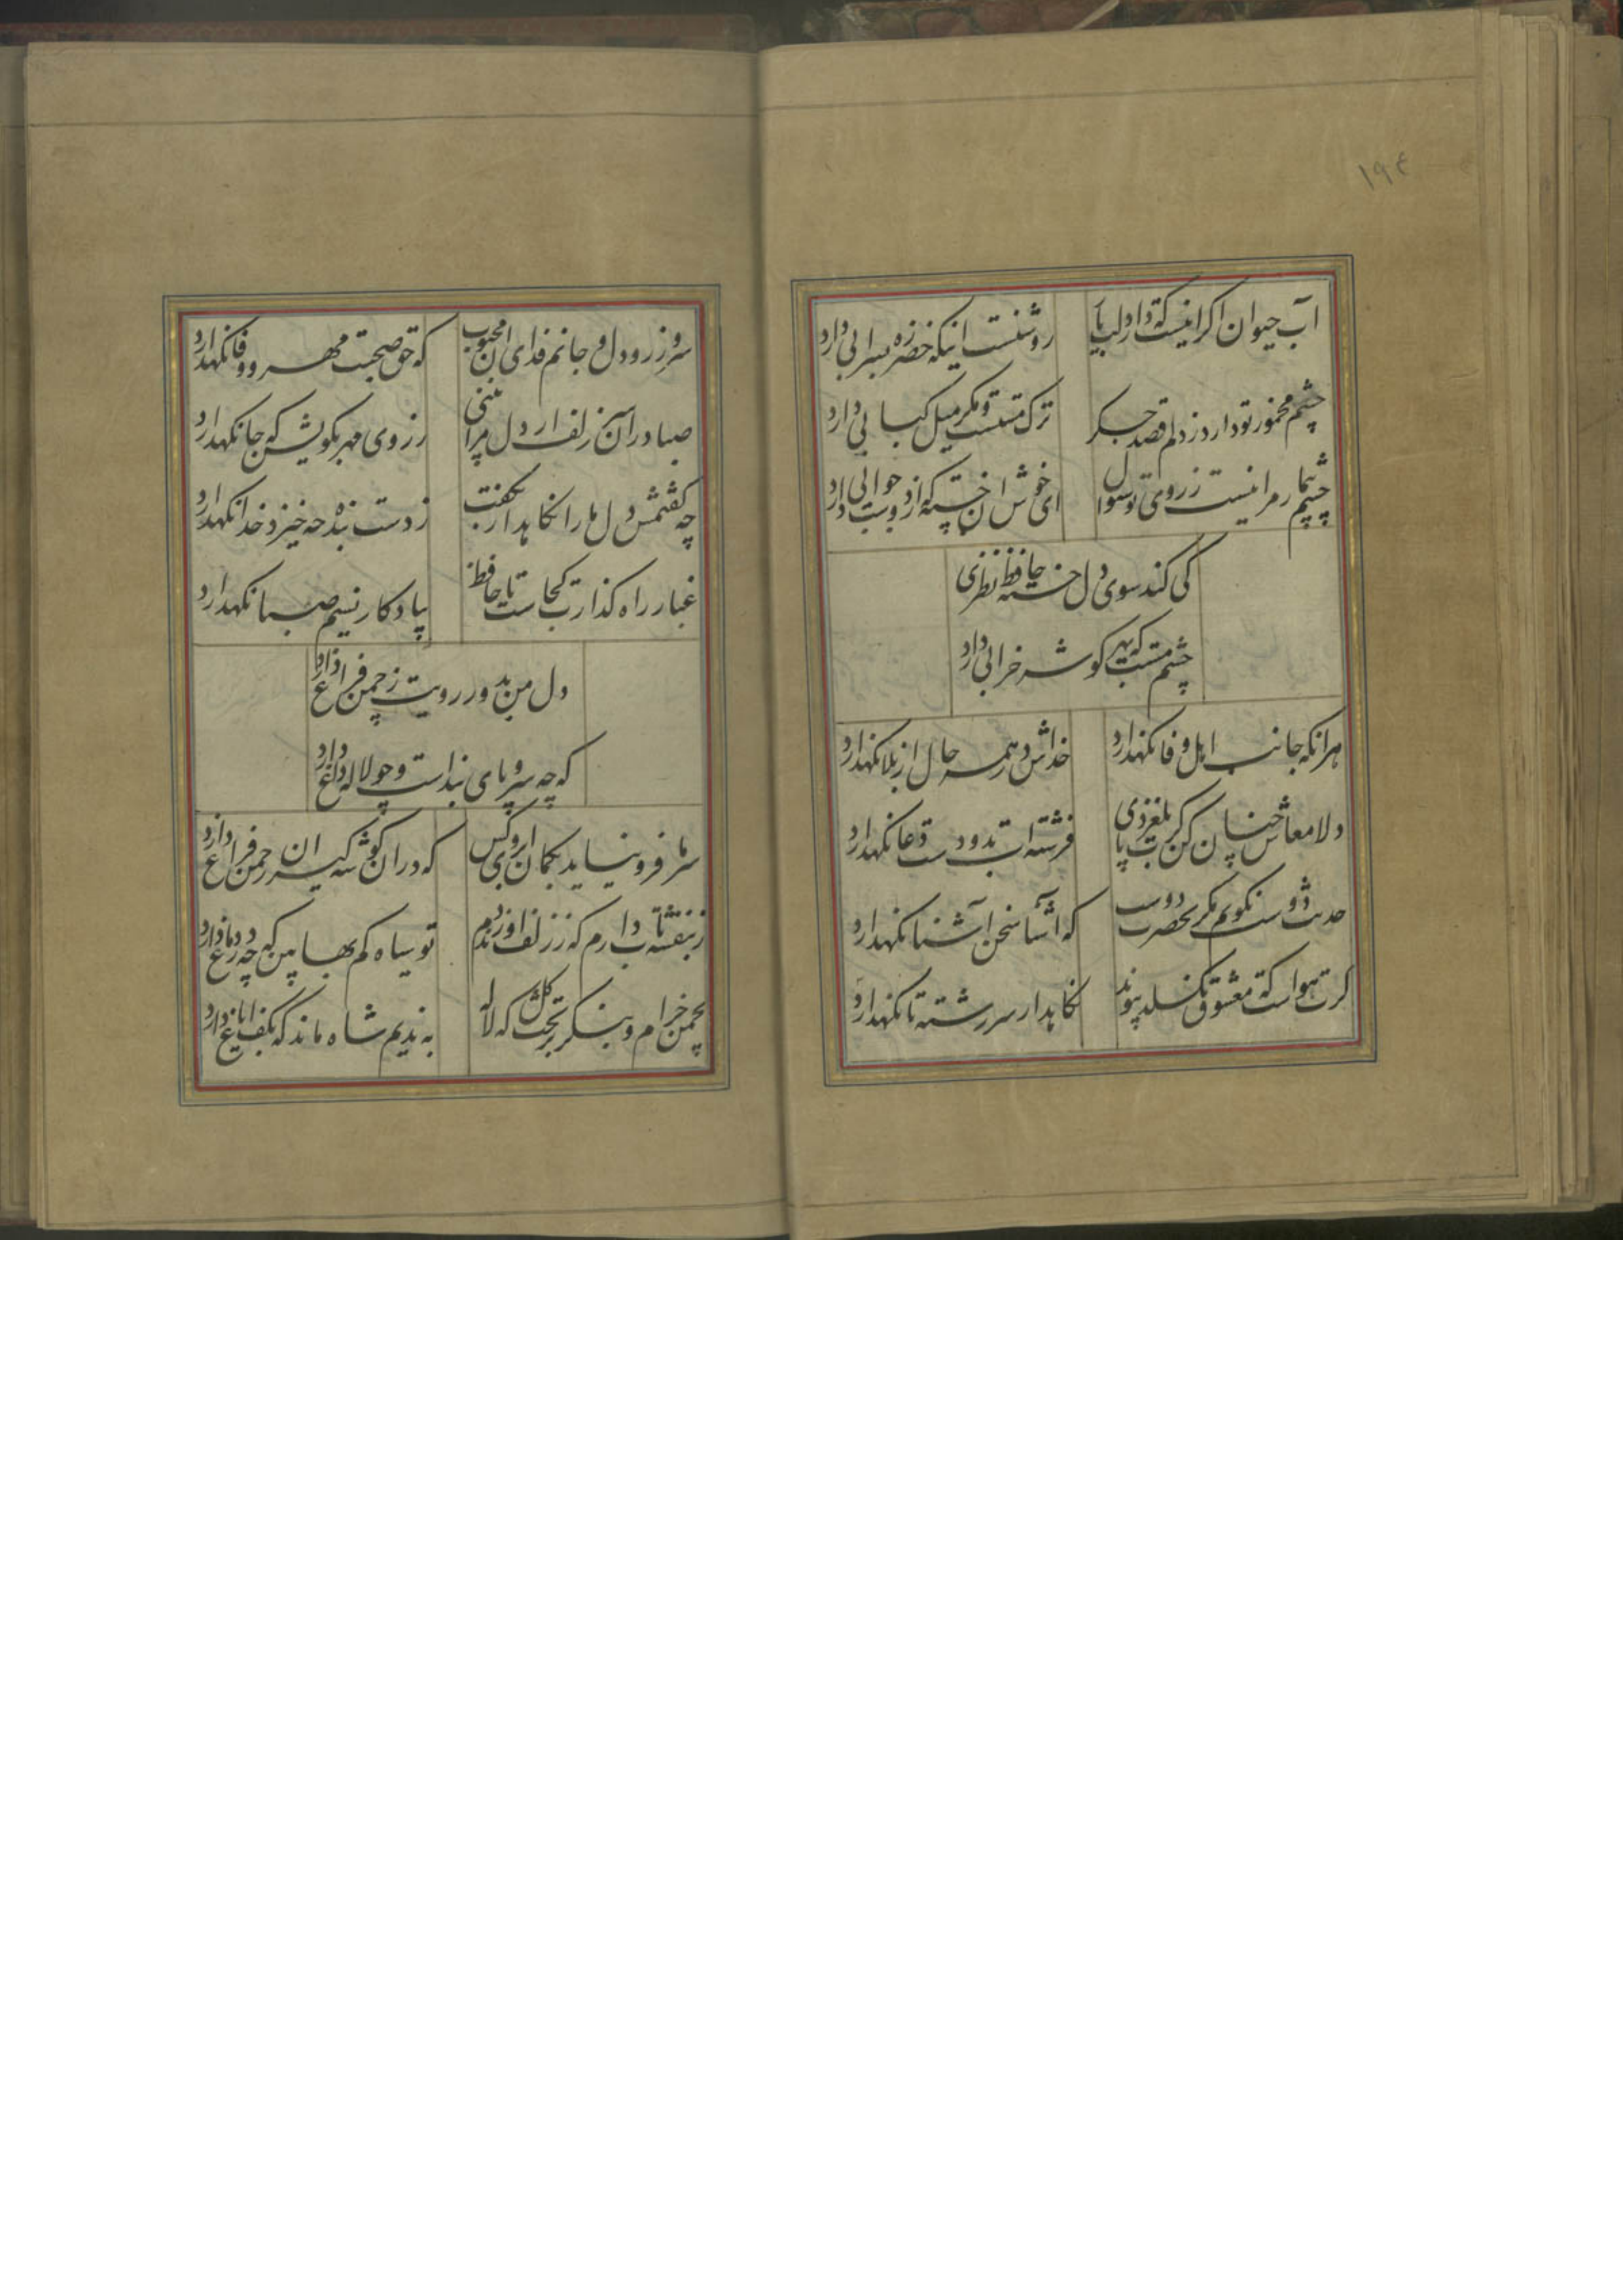 ١٩٤
آب حیوان اگر اینست که دارد لب یار
روشنست اینکه خضر زه بسرابی دارد
چشم مخمور تو دارد ز دلم قصد جگر
ترک مستست و مگر میل کبابی دارد
چشم بیمار مرا نیست ز روی تو سوال
ای خوش ان خسته که از دوست جوابی دارد
کی کند سوی دل خسته حافظ نظری
چشم مستت که بهر گوشه خرابی دارد
هر انکه جانب اهل وفا نگهدارد
خداش در همه حال از بلا نگهدارد
دلا معاش چنان کن که گر بلغزد پای
فرشته ات بدو دست دعا نگهدارد
حدیث دوست نگویم مگر بحضرت دوست
که آشنا سخن آشنا نگهدارد
گرت هواست که معشوق نگسلد پیوند
نگاه دار سر رشته تا نگهدارد
سر و زر و دل و جانم فدای ان محبوب
که حق صحبت مهر و وفا نگهدارد
صبا در آن زلف ار دل مرا بینی
ز روی مهر بگویش که جا نگهدارد
چه گفتمش دل ما را نگاه دار بگفت
ز دست بنده چه خیزد خدا نگهدارد
غبار راه گذارت کجاست تا حافظ
بیادگار نسیم صبا نگهدارد
دل من بدور رویت ز چمن فراغ دارد
که چه سرو پای بنداست و چو لاله داغ دارد
سر ما فرو نیاید بکمان ابروی کس
که دران گوشه گیران ز چمن فراغ دارد
ز بنفشه تاب دارم که ز زلف او زند دم
تو سیاه کم بها بین که چه در دماغ دارد
بچمن خرام و بنگر بر تخت گل که لاله
به ندیم شاه ماند که بکف ایاغ دارد